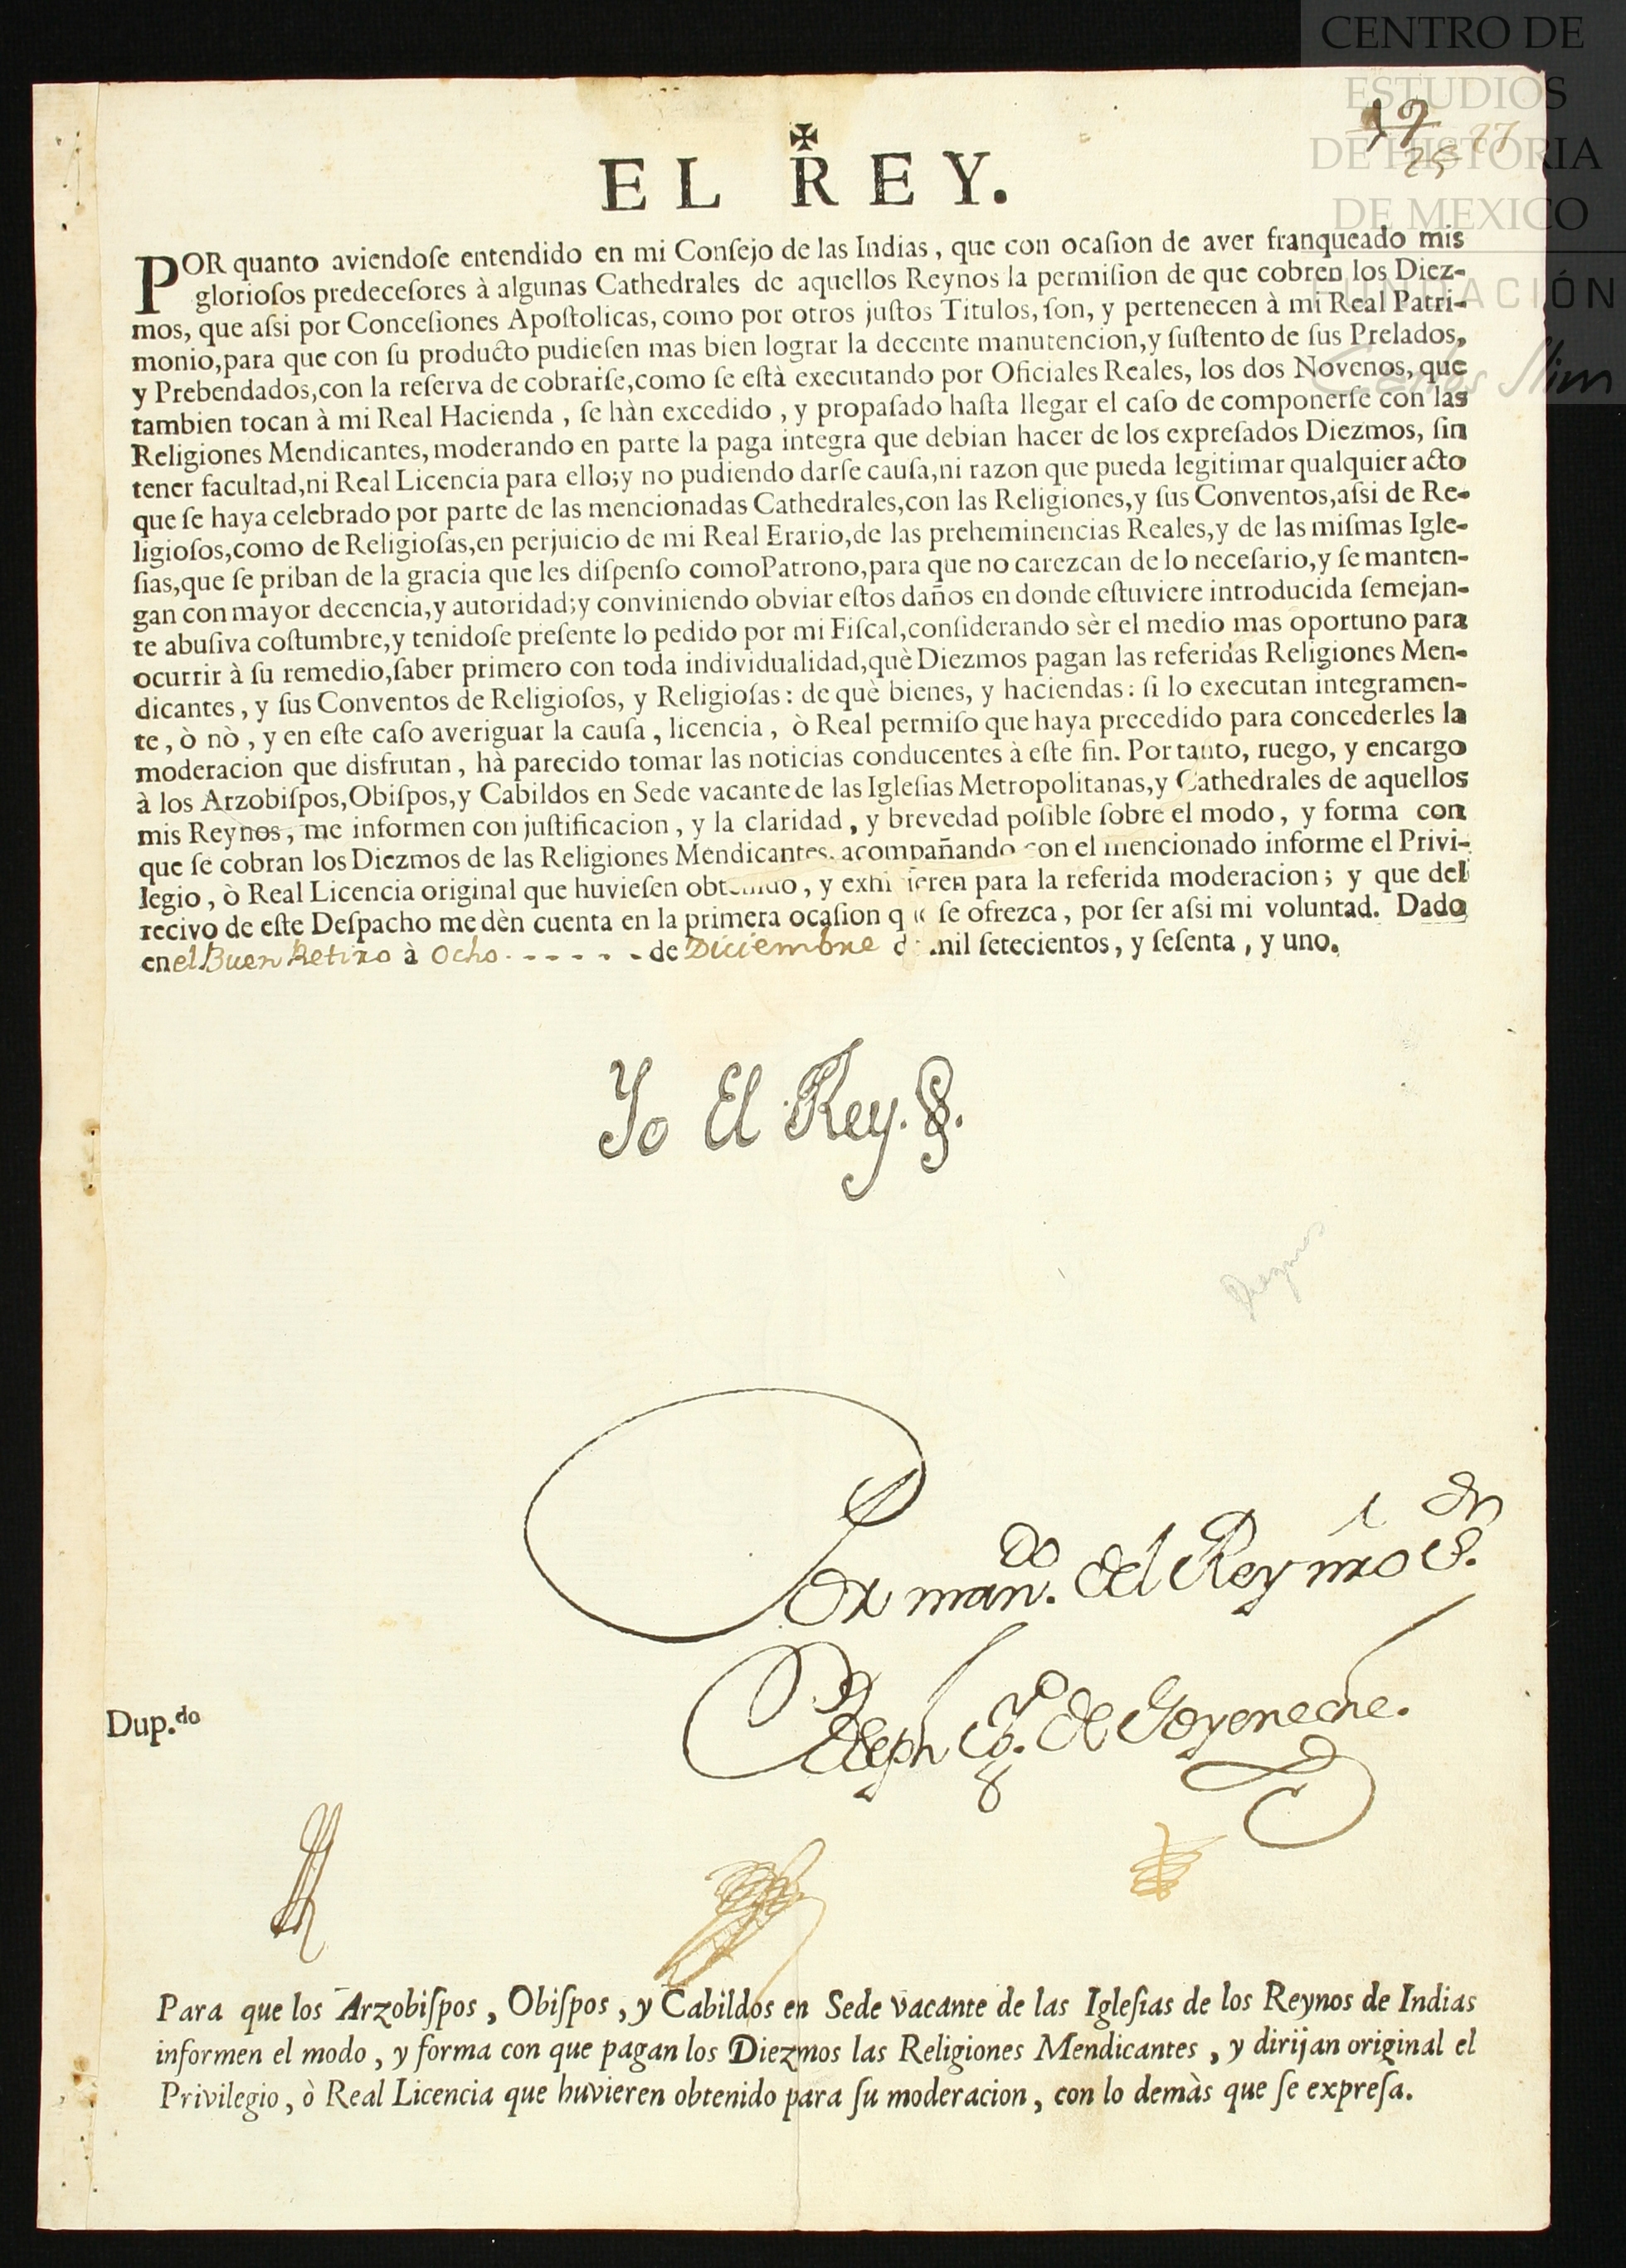 CENTRO DE
ESTUDIOS
DE HISTORIA
DE MEXICO
FUNDACIÓN
Carlos Slim
19
25
27
✠
EL REY.
POR quanto aviendoſe entendido en mi Conſejo de las Indias, que con ocaſion de aver franqueado mis
glorioſos predeceſores à algunas Cathedrales de aquellos Reynos la permiſion de que cobren los Diez-
mos, que aſsi por Conceſiones Apoſtolicas, como por otros juſtos Titulos, ſon, y pertenecen à mi Real Patri-
monio, para que con ſu producto pudieſen mas bien lograr la decente manutencion, y ſuſtento de ſus Prelados,
y Prebendados, con la reſerva de cobrarſe, como ſe eſtà executando por Oficiales Reales, los dos Novenos, que
tambien tocan à mi Real Hacienda, ſe hàn excedido, y propaſado haſta llegar el caſo de componerſe con las
Religiones Mendicantes, moderando en parte la paga integra que debian hacer de los expreſados Diezmos, ſin
tener facultad, ni Real Licencia para ello; y no pudiendo darſe cauſa, ni razon que pueda legitimar qualquier acto
que ſe haya celebrado por parte de las mencionadas Cathedrales, con las Religiones, y ſus Conventos, aſsi de Re-
ligioſos, como de Religioſas, en perjuicio de mi Real Erario, de las preheminencias Reales, y de las miſmas Igle-
ſias, que ſe priban de la gracia que les diſpenſo como Patrono, para que no carezcan de lo neceſario, y ſe manten-
gan con mayor decencia, y autoridad; y conviniendo obviar eſtos daños en donde eſtuviere introducida ſemejan-
te abuſiva coſtumbre, y tenidoſe preſente lo pedido por mi Fiſcal, conſiderando sèr el medio mas oportuno para
ocurrir à ſu remedio, ſaber primero con toda individualidad, què Diezmos pagan las referidas Religiones Men-
dicantes, y ſus Conventos de Religioſos, y Religioſas: de què bienes, y haciendas: ſi lo executan integramen-
te, ò nò, y en eſte caſo averiguar la cauſa, licencia, ò Real permiſo que haya precedido para concederles la
moderacion que disfrutan, hà parecido tomar las noticias conducentes à eſte fin. Por tanto, ruego, y encargo
à los Arzobiſpos, Obiſpos, y Cabildos en Sede vacante de las Igleſias Metropolitanas, y Cathedrales de aquellos
mis Reynos, me informen con juſtificacion, y la claridad, y brevedad poſible ſobre el modo, y forma con
que ſe cobran los Diezmos de las Religiones Mendicantes, acompañando con el mencionado informe el Privi-
legio, ò Real Licencia original que huvieſen obtenido, y exhivieren para la referida moderacion; y que del
recivo de eſte Deſpacho me dèn cuenta en la primera ocaſion que ſe ofrezca, por ſer aſsi mi voluntad. Dado
en el Buen Retiro à Ocho - - - - - - de Diciembre de mil ſetecientos, y ſeſenta, y uno.
Yo El Rey.
Diezmos
Por man.do del Rey nro S.r
Joseph Ig.o de Goyeneche.
Dup.do
Para que los Arzobiſpos, Obiſpos, y Cabildos en Sede vacante de las Igleſias de los Reynos de Indias
informen el modo, y forma con que pagan los Diezmos las Religiones Mendicantes, y dirijan original el
Privilegio, ò Real Licencia que huvieren obtenido para ſu moderacion, con lo demàs que ſe expreſa.